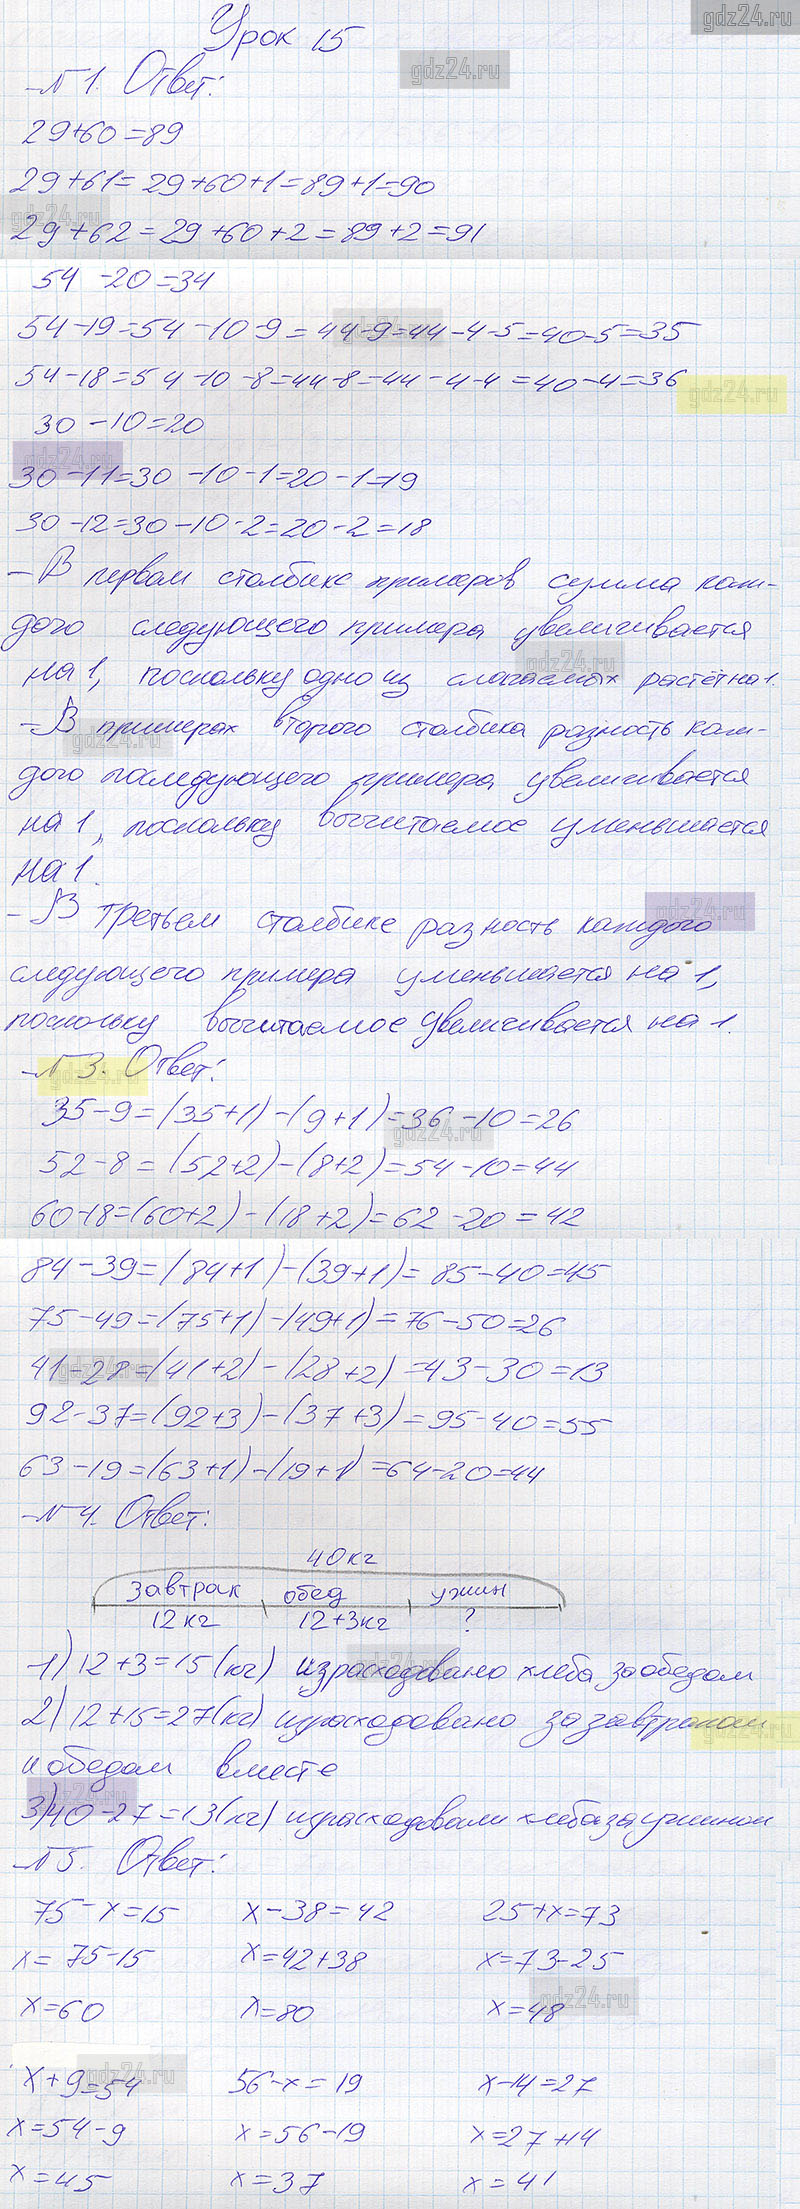 gdz24.ru
Урок 15
gdz24.ru
№1. Ответ:
29+60=89
29+61=29+60+1=89+1=90
gdz24.ru
29+62=29+60+2=89+2=91
54-20=34
54-19=54-10-9=44-9=44-4-5=40-5=35
gdz24.ru
54-18=54-10-8=44-8=44-4-4=40-4=36
gdz24.ru
30-10=20
gdz24.ru
30-11=30-10-1=20-1=19
30-12=30-10-2=20-2=18
- В первом столбике примеров сумма каж-
дого следующего примера увеличивается
gdz24.ru
на 1, поскольку одно из слагаемых растёт на 1.
- В примерах второго столбика разность каж-
gdz24.ru
дого последующего примера увеличивается
на 1, поскольку вычитаемое уменьшается
на 1.
gdz24.ru
- В третьем столбике разность каждого
следующего примера уменьшается на 1,
поскольку вычитаемое увеличивается на 1.
№3. Ответ:
gdz24.ru
35-9=(35+1)-(9+1)=36-10=26
gdz24.ru
52-8=(52+2)-(8+2)=54-10=44
60-18=(60+2)-(18+2)=62-20=42
84-39=(84+1)-(39+1)=85-40=45
75-49=(75+1)-(49+1)=76-50=26
41-28=(41+2)-(28+2)=43-30=13
gdz24.ru
92-37=(92+3)-(37+3)=95-40=55
63-19=(63+1)-(19+1)=64-20=44
№4. Ответ:
40кг
завтрак обед ужин
12кг 12+3кг ?
1) 12+3=15(кг) израсходовано хлеба за обедом
gdz24.ru
2) 12+15=27(кг) израсходовано за завтраком
gdz24.ru
и обедом вместе
gdz24.ru
3) 40-27=13(кг) израсходовали хлеба за ужином
№5. Ответ:
75-x=15 x-38=42 25+x=73
x=75-15 x=42+38 x=73-25
x=60 x=80 x=48
gdz24.ru
gdz24.ru
x+9=54 56-x=19 x-14=27
x=54-9 x=56-19 x=27+14
x=45 x=37 x=41